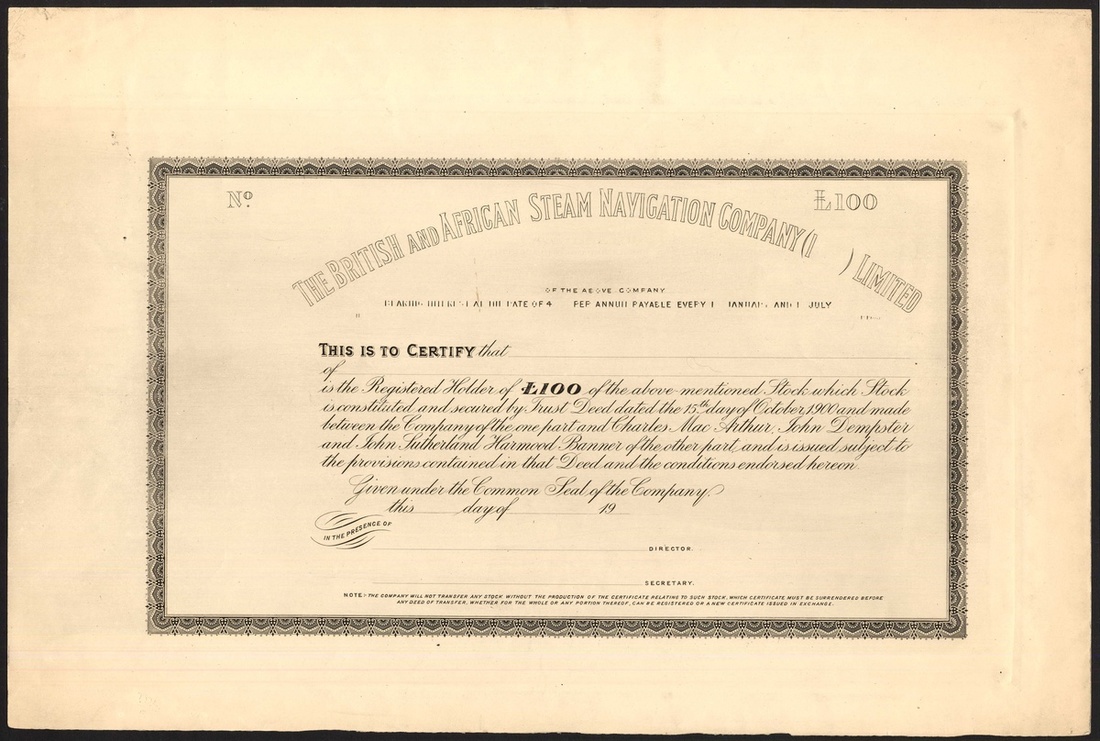 Nº
£100
THE BRITISH AND AFRICAN STEAM NAVIGATION COMPANY (1 ) LIMITED
OF THE ABOVE COMPANY
BEARING INTEREST AT THE RATE OF 4 PER ANNUM PAYABLE EVERY 1 JANUARY AND 1 JULY
THIS IS TO CERTIFY that
of
is the Registered Holder of £100 of the above-mentioned Stock which Stock
is constituted and secured by Trust Deed dated the 15th day of October 1900 and made
between the Company of the one part and Charles Mac Arthur, John Dempster
and John Sutherland Harmood Banner of the other part, and is issued subject to
the provisions contained in that Deed and the conditions endorsed hereon.
Given under the Common Seal of the Company
this day of 19
IN THE PRESENCE OF
DIRECTOR.
SECRETARY.
NOTE:- THE COMPANY WILL NOT TRANSFER ANY STOCK WITHOUT THE PRODUCTION OF THE CERTIFICATE RELATING TO SUCH STOCK, WHICH CERTIFICATE MUST BE SURRENDERED BEFORE
ANY DEED OF TRANSFER, WHETHER FOR THE WHOLE OR ANY PORTION THEREOF, CAN BE REGISTERED OR A NEW CERTIFICATE ISSUED IN EXCHANGE.